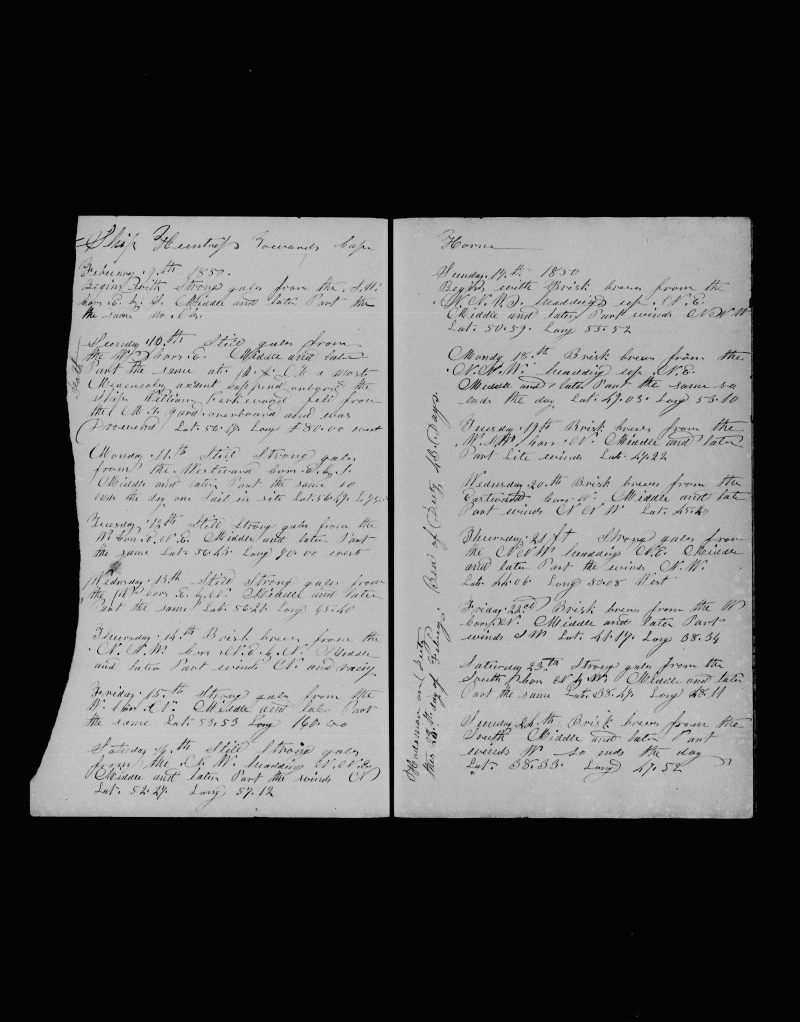 Ship Huntress Towards Cape
February 9th 1850.
Begins with Strong gales from the S.W.
bore E. by S. Middle and later Part the
the same
Sunday 10th Still gales from
the W bore E. Middle and later
Part the same at a most
axcent the
Ship William Kirkwood fell from
the M. To. yard overboard and was
Drownd Lat. 56.19. Long 80.00 west
Death
Monday 11th Still Strong gales
from the Westward bore E.by.S.
Middle and later Part the same so
ends the day one Sail in site Lat. 56.49.
Tuesday 12th Still Strong gales from the
W bore E.N.E. Middle and later Part
the same Lat. 56.43. Long 70.00 west
Wednesday 13th Still Strong gales from
the W bore E.by.N. Middle and later
Part the same Lat. 56.21. Long 65.40
Thursday 14th Brisk brees from the
N.N.W. bore N.E.by.N. Middle
and later Part winds N. and
Friday 15th Strong gales from the
W. bore N. Middle and later Part
the same Lat. 53.53 Long 160.00
Saturday 16th Still Strong gales
from the N.W. heading N.N.E.
Middle and later Part the winds N
Lat. 52.27. Long 57.12
Horne
Sunday 17th 1850
Begins with Brisk brees from the
heading up N.E.
Middle and later Part winds N.N.W
Lat. 50.59. Long 55.52
Monday 18th Brisk brees from the
N.N.W. heading up N.E.
Middle and later Part the same so
ends the day. Lat. 49.03. Long 53.10
Tuesday 19th Brisk brees from the
W.N.W. bore N. Middle and later
Part Lite winds Lat. 47.22
Wednesday 20th Brisk brees from the
Eastward bore N. Middle and late
Part winds N N W Lat. 45.40
Thursday 21st Strong gales from
the N N W heading N.E. Middle
and later Part the winds N.W.
Lat. 44.06 Long 50.08 West
Friday 22nd Brisk brees from the W
bore N. Middle and later Part
winds S.W Lat. 41.17. Long 38.34
Saturday 23th Strong gales from the
South bore N by W. Middle and later
Part the same Lat. 38.47. Long 48.11
Sunday 24th Brisk brees from the
South Middle and later Part
winds W so ends the day
Lat. 38.33. Long 47.52
of Duty 43 Days
this day of